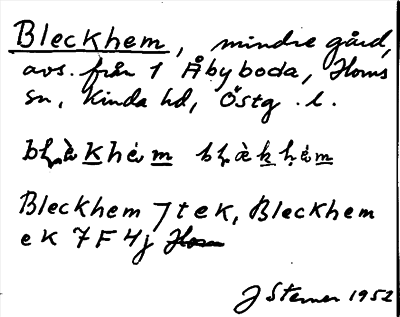 Bleckhem, mindre gård,
avs. från 1 Åbyboda, Horns
sn, Kinda hd, Östg. l.
Bleckhem 7 tek, Bleckhem
ek 7 F 4j
J Sterner 1952